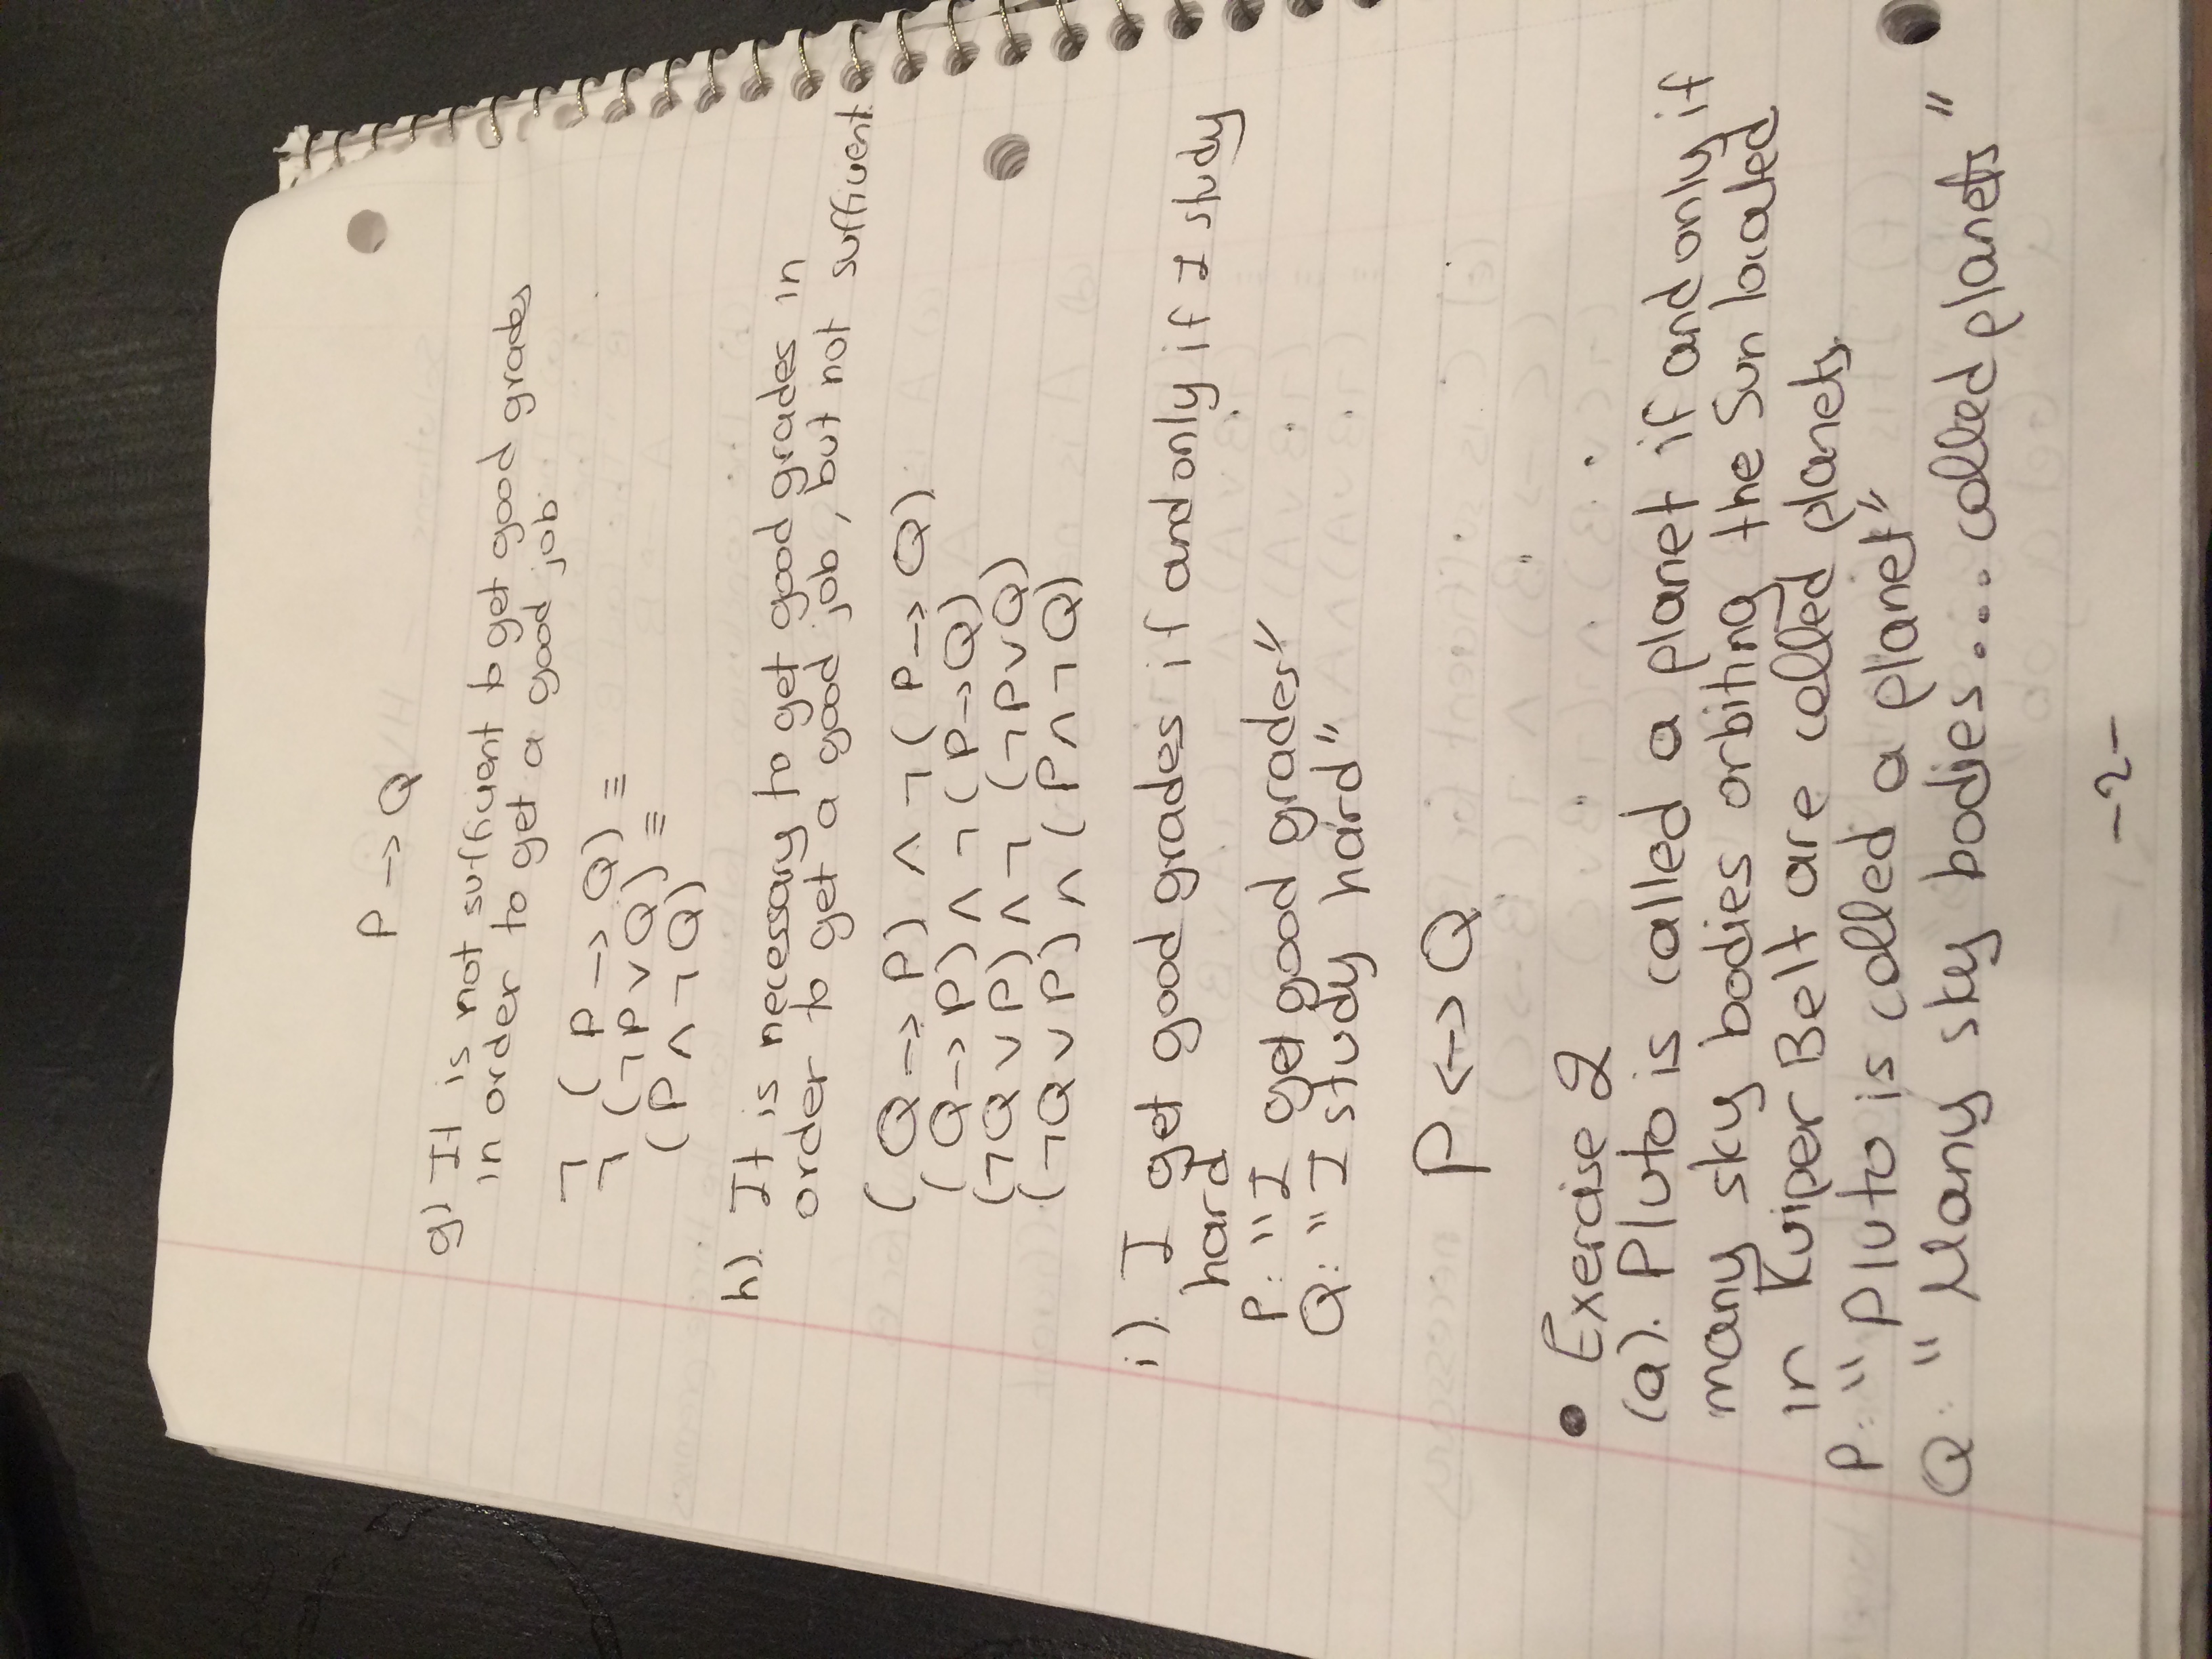 P → Q
g) It is not sufficient to get good grades
in order to get a good job
¬ ( P → Q) ≡
¬ (¬P ∨ Q) ≡
(P ∧ ¬ Q)
h). It is necessary to get good grades in
order to get a good job, but not sufficient.
( Q → P) ∧ ¬ ( P → Q)
( Q → P) ∧ ¬ ( P → Q)
(¬Q ∨ P) ∧ ¬ (¬P ∨ Q)
(¬Q ∨ P) ∧ (P ∧ ¬ Q)
i). I get good grades if and only if I study
hard
P: "I get good grades"
Q: "I study hard"
P ↔ Q
• Exercise 2
(a). Pluto is called a planet if and only if
many sky bodies orbiting the Sun located
in Kuiper Belt are called planets.
P: "Pluto is called a planet"
Q: "Many sky bodies... called planets"
-2-